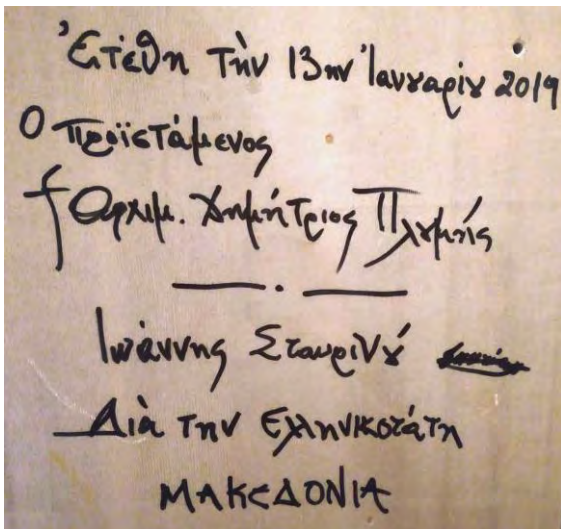 Ἐτέθη τὴν 13ην Ἰανουαρίου 2019
Ο Προϊστάμενος
† Ἀρχιμ. Δημήτριος Πλουμής
Ιωάννης Σταυρινού
Διὰ την Ελληνικοτάτη
ΜΑΚΕΔΟΝΙΑ